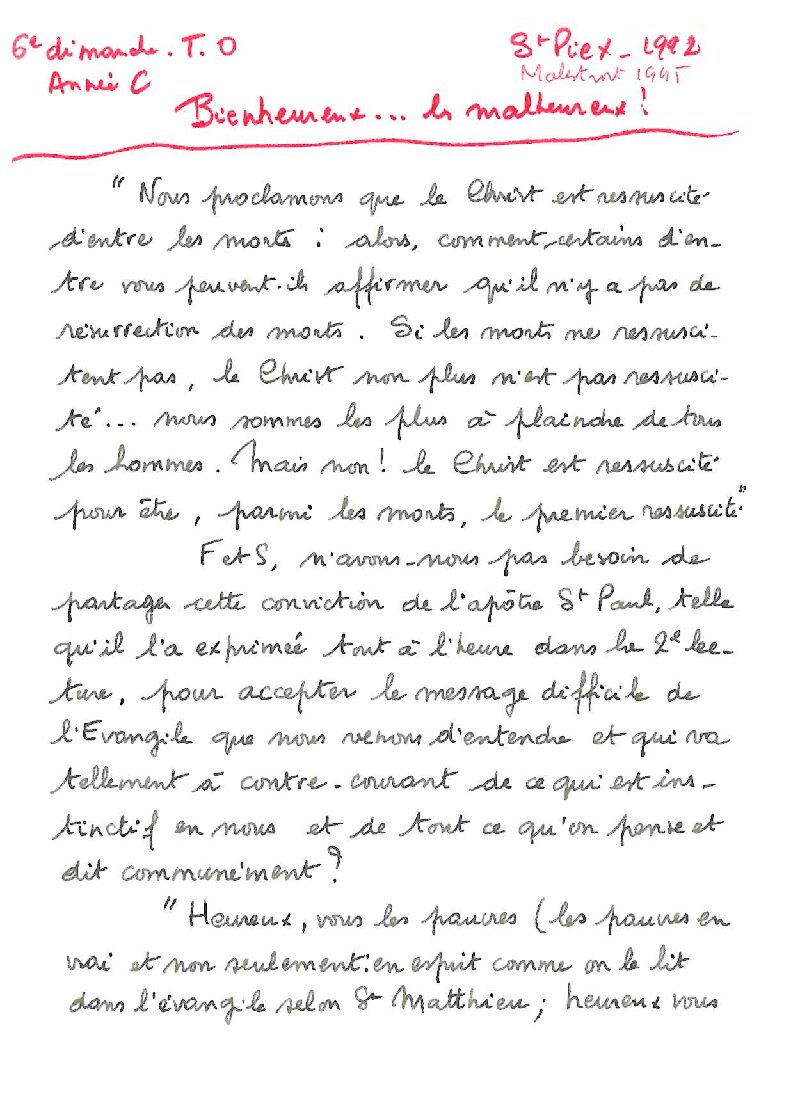 6e dimanche. T. O
St Pie X - 1992
Année C
Malestroit 1995
Bienheureux... les malheureux!
" Nous proclamons que le Christ est ressuscité
d'entre les morts : alors, comment certains d'en-
tre vous peuvent-ils affirmer qu'il n'y a pas de
résurrection des morts . Si les morts ne ressusci-
tent pas , le Christ non plus n'est pas ressusci-
té... nous sommes les plus à plaindre de tous
les hommes. Mais non! le Christ est ressuscité
pour être , parmi les morts, le premier ressuscité"
F et S, n'avons-nous pas besoin de
partager cette conviction de l'apôtre St Paul, telle
qu'il l'a exprimée tout à l'heure dans la 2e lec-
ture, pour accepter le message difficile de
l'Evangile que nous venons d'entendre et qui va
tellement à contre-courant de ce qui est ins-
tinctif en nous et de tout ce qu'on pense et
dit communément ?
" Heureux, vous les pauvres (les pauvres en
vrai et non seulement : en esprit comme on le lit
dans l'évangile selon St Matthieu ; heureux vous